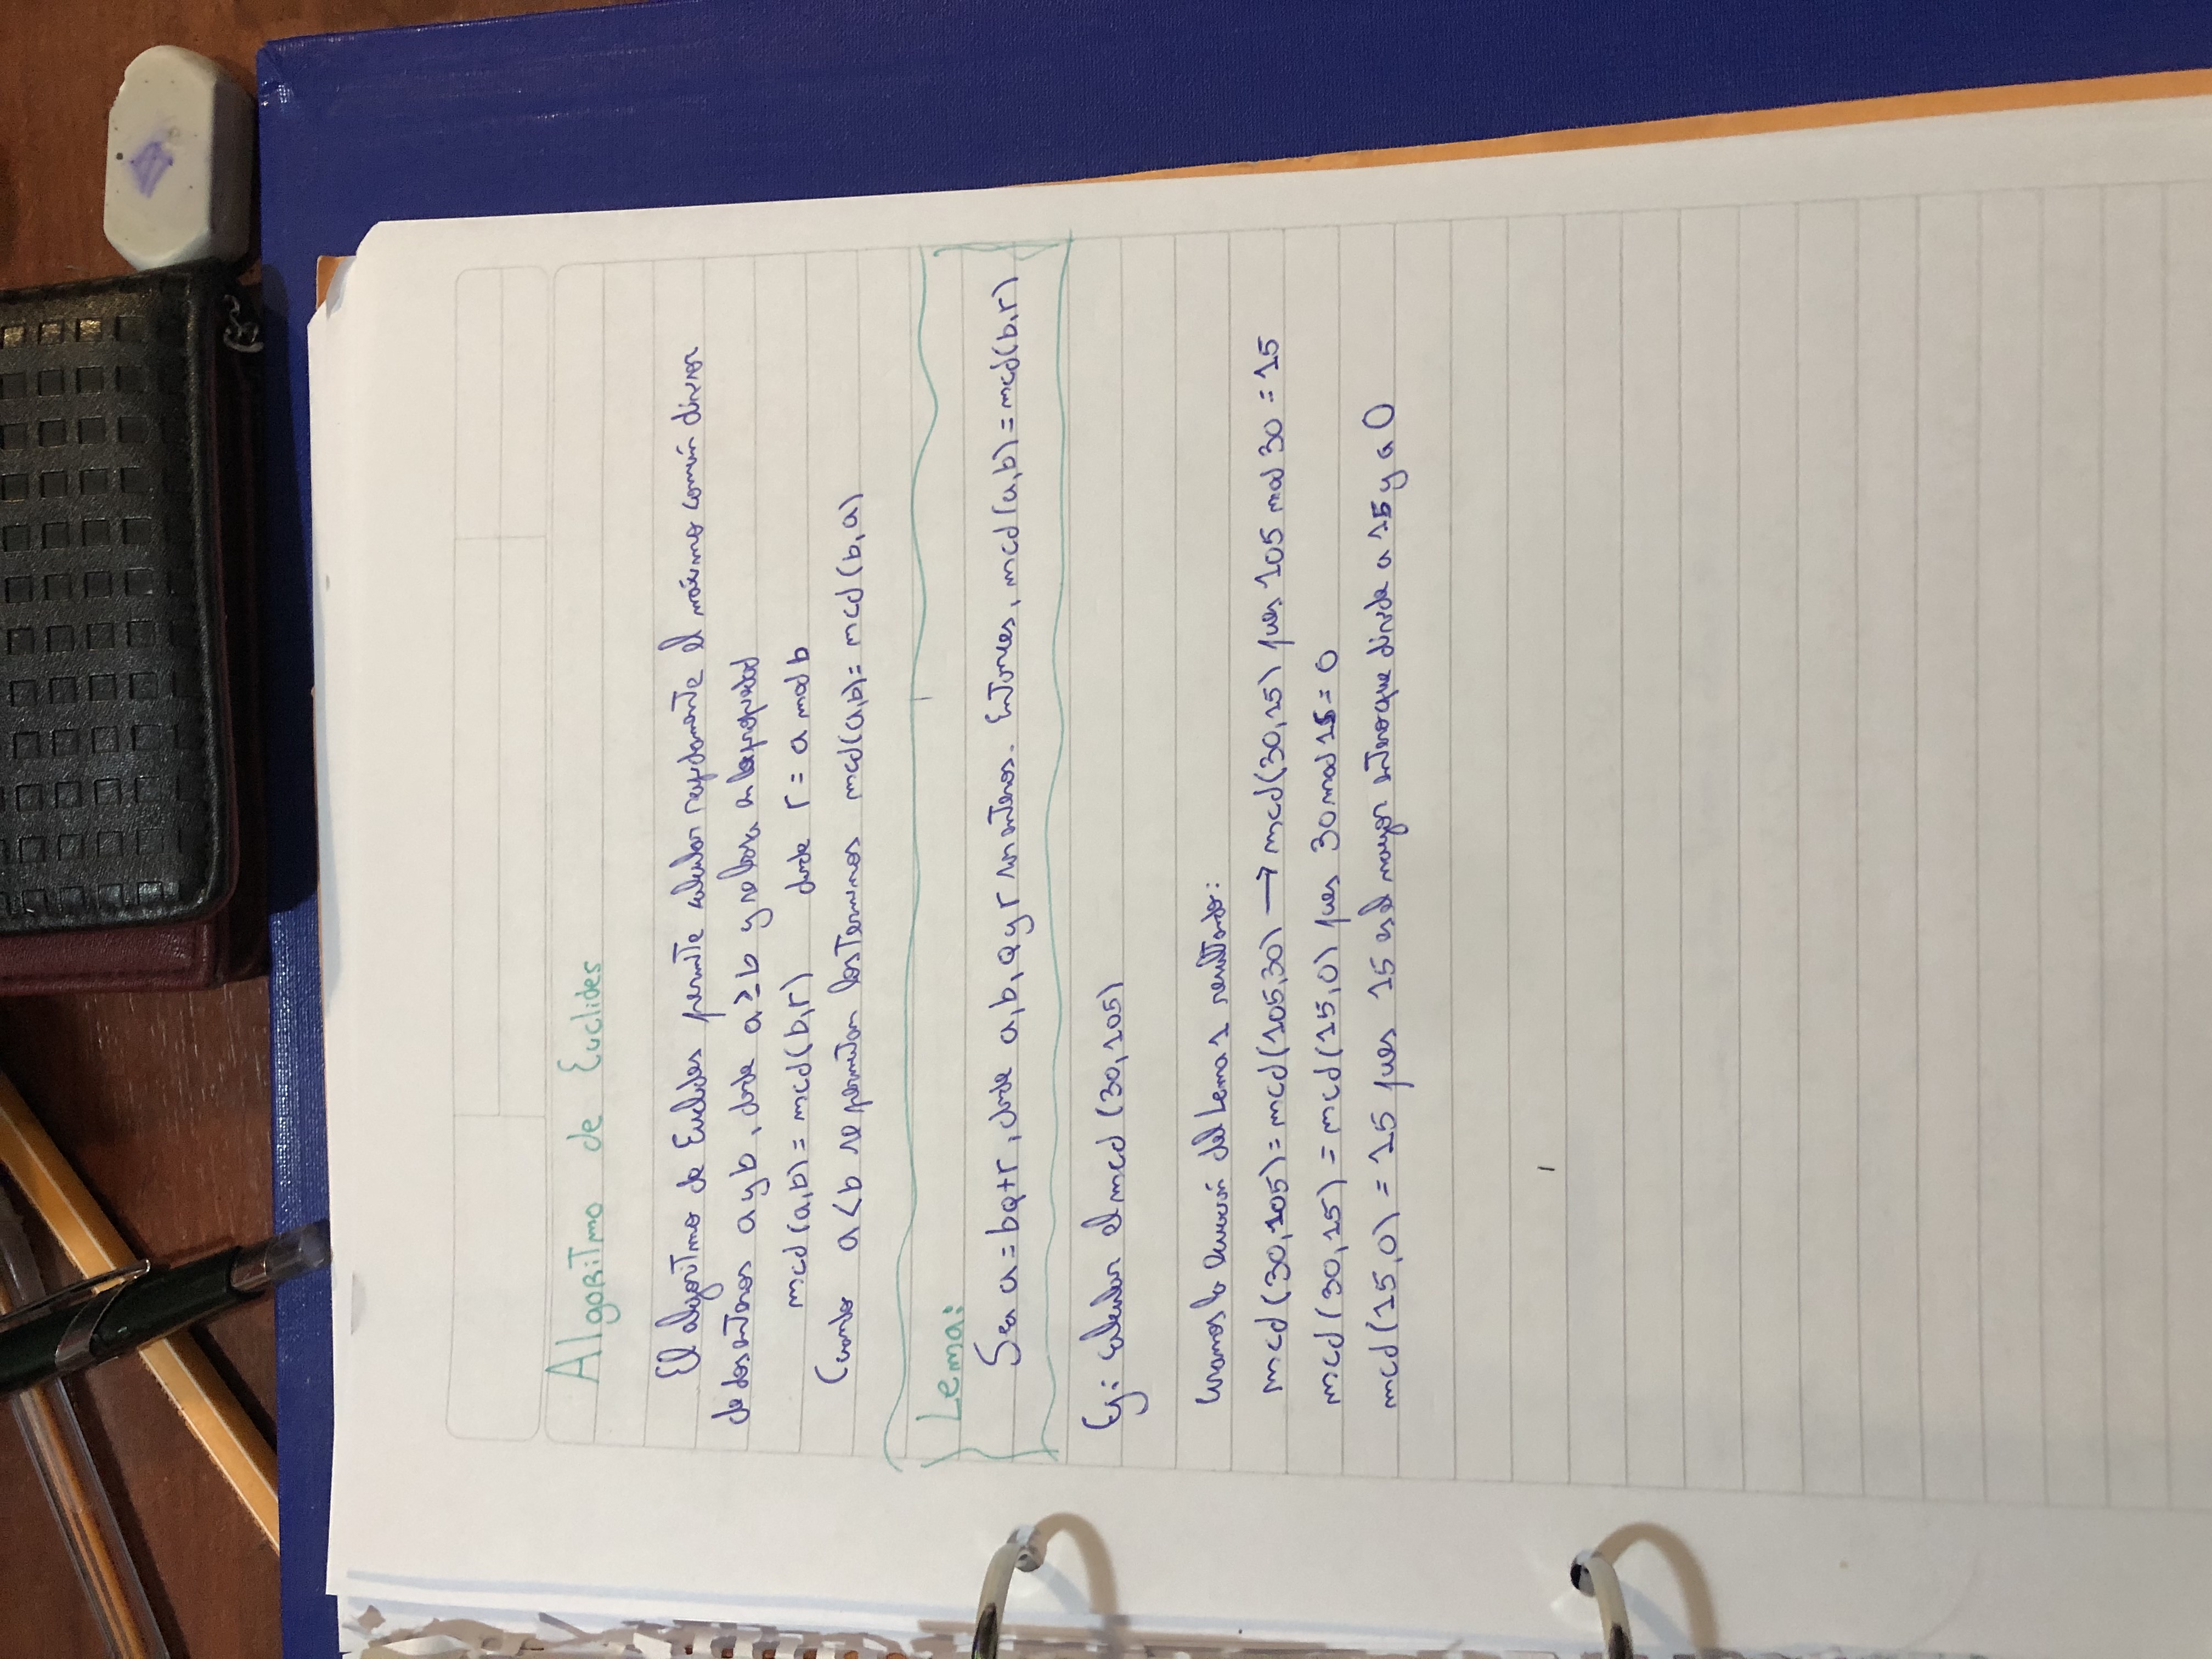 Algoritmo de Euclides
El algoritmo de Euclides permite calcular rapidamente el máximo común divisor
de dos enteros a y b, donde a ≥ b y se basa en la propiedad
mcd(a,b) = mcd(b,r) donde r = a mod b
Cuando a < b se permutan los terminos mcd(a,b) = mcd(b,a)
Lema:
Sea a = bq+r, donde a, b, q y r son enteros. Entonces, mcd(a,b) = mcd(b,r)
Ej: calcular el mcd (30,105)
usamos la ecuación del Lema 1 resultando:
mcd(30,105) = mcd(105,30) → mcd(30,15) pues 105 mod 30 = 15
mcd(30,15) = mcd(15,0) pues 30 mod 15 = 0
mcd(15,0) = 15 pues 15 es el mayor entero que divide a 15 y a 0